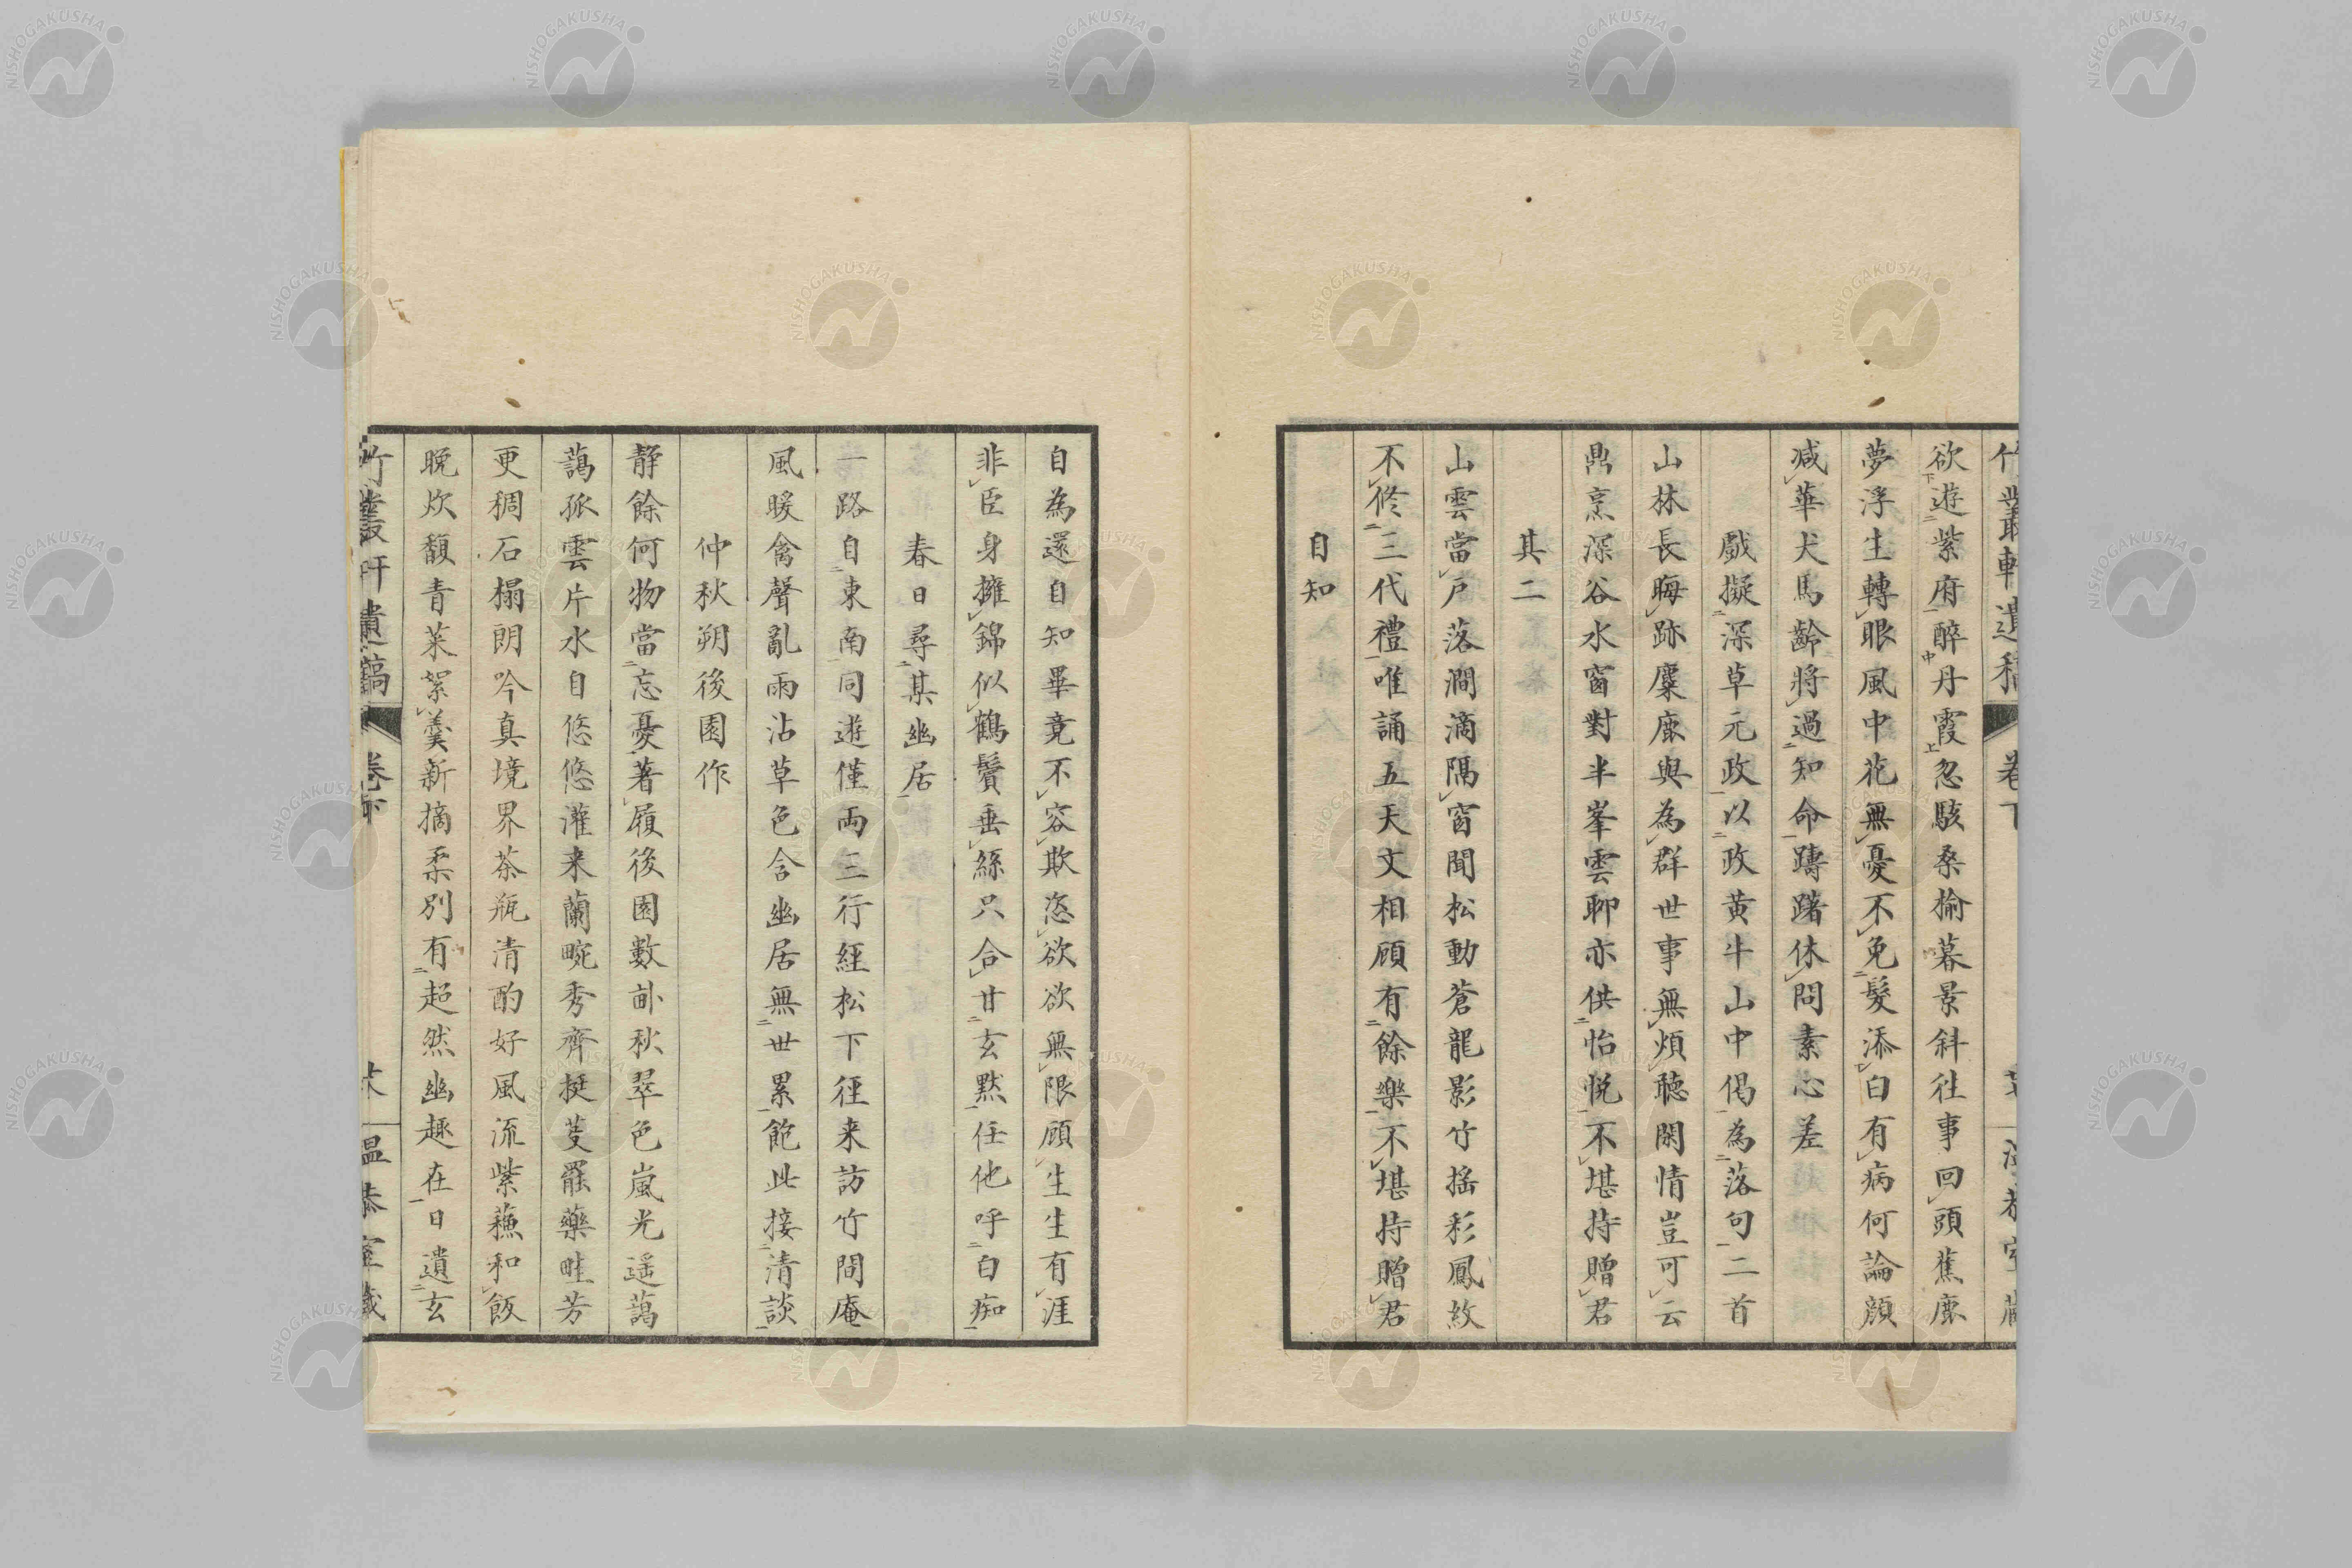 竹叢軒遺稿 卷下
欲遊紫府醉丹霞忽駭桑榆暮景斜往事回頭蕉鹿
夢浮生轉眼風中花無憂不免髮添白有病何論顔
減華犬馬齡將過知命躊躇休問素心差
戲擬深草元政以政黃牛山中偈為落句二首
山林長晦跡麋鹿與為群世事無煩聽閑情豈可云
鼎烹深谷水窗對半峯雲聊亦供怡悅不堪持贈君
其二
山雲當戶落澗滴隔窗聞松動蒼龍影竹搖彩鳳紋
不修三代禮唯誦五天文相顧有餘樂不堪持贈君
自知
自為還自知畢竟不容欺恣欲欲無限顧生生有涯
非臣身擁錦似鶴鬢垂絲只合甘玄默任他呼白痴
春日尋某幽居
一路自東南同遊僅両三行經松下徑来訪竹間庵
風暖禽聲亂雨沾草色含幽居無世累飽此接清談
仲秋朔後園作
靜餘何物當忘憂著屐後園數畝秋翠色嵐光遥藹
藹孤雲片水自悠悠灌来蘭畹秀齊挺芟罷藥畦芳
更稠石榻朗吟真境界茶瓶清酌好風流紫蘓和飯
晚炊馥青菜絮羹新摘柔別有超然幽趣在日遺玄
竹叢軒遺稿 卷下
温恭室藏
NISHOGAKUSHA